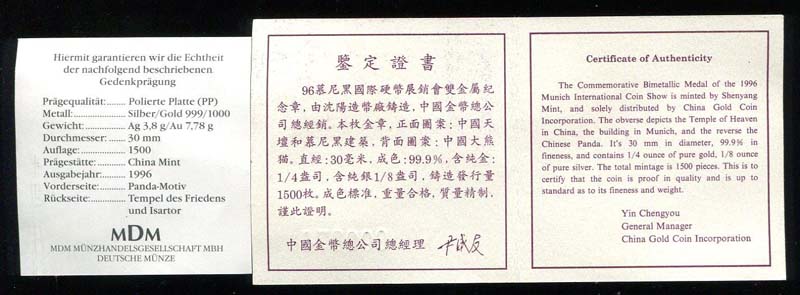 Hiermit garantieren wir die Echtheit
der nachfolgend beschriebenen
Gedenkprägung
Prägequalität:....... Polierte Platte (PP)
Metall:.................. Silber/Gold 999/1000
Gewicht:.............. Ag 3,8 g/Au 7,78 g
Durchmesser:...... 30 mm
Auflage:............... 1500
Prägestätte:......... China Mint
Ausgabejahr:........ 1996
Vorderseite:......... Panda-Motiv
Rückseite:............ Tempel des Friedens
und Isartor
MDM
MDM MÜNZHANDELSGESELLSCHAFT MBH
DEUTSCHE MÜNZE
鑒定證書
96慕尼黑國際硬幣展銷會雙金屬紀
念章，由沈陽造幣廠鑄造，中國金幣總公
司總經銷。本枚金章，正面圖案：中國天
壇和慕尼黑建築，背面圖案：中國大熊
猫。直經：30毫米，成色：99.9%，含純金：
1/4盎司，含純銀1/8盎司，鑄造發行量
1500枚。成色標准，重量合格，質量精制，
謹此證明。
中國金幣總公司總經理
Certificate of Authenticity
The Commemorative Bimetallic Medal of the 1996
Munich International Coin Show is minted by Shenyang
Mint, and solely distributed by China Gold Coin
Incorporation. The obverse depicts the Temple of Heaven
in China, the building in Munich, and the reverse the
Chinese Panda. It's 30 mm in diameter, 99.9% in
fineness, and contains 1/4 ounce of pure gold, 1/8 ounce
of pure silver. The total mintage is 1500 pieces. This is to
certify that the coin is proof in quality and is up to
standard as to its fineness and weight.
Yin Chengyou
General Manager
China Gold Coin Incorporation